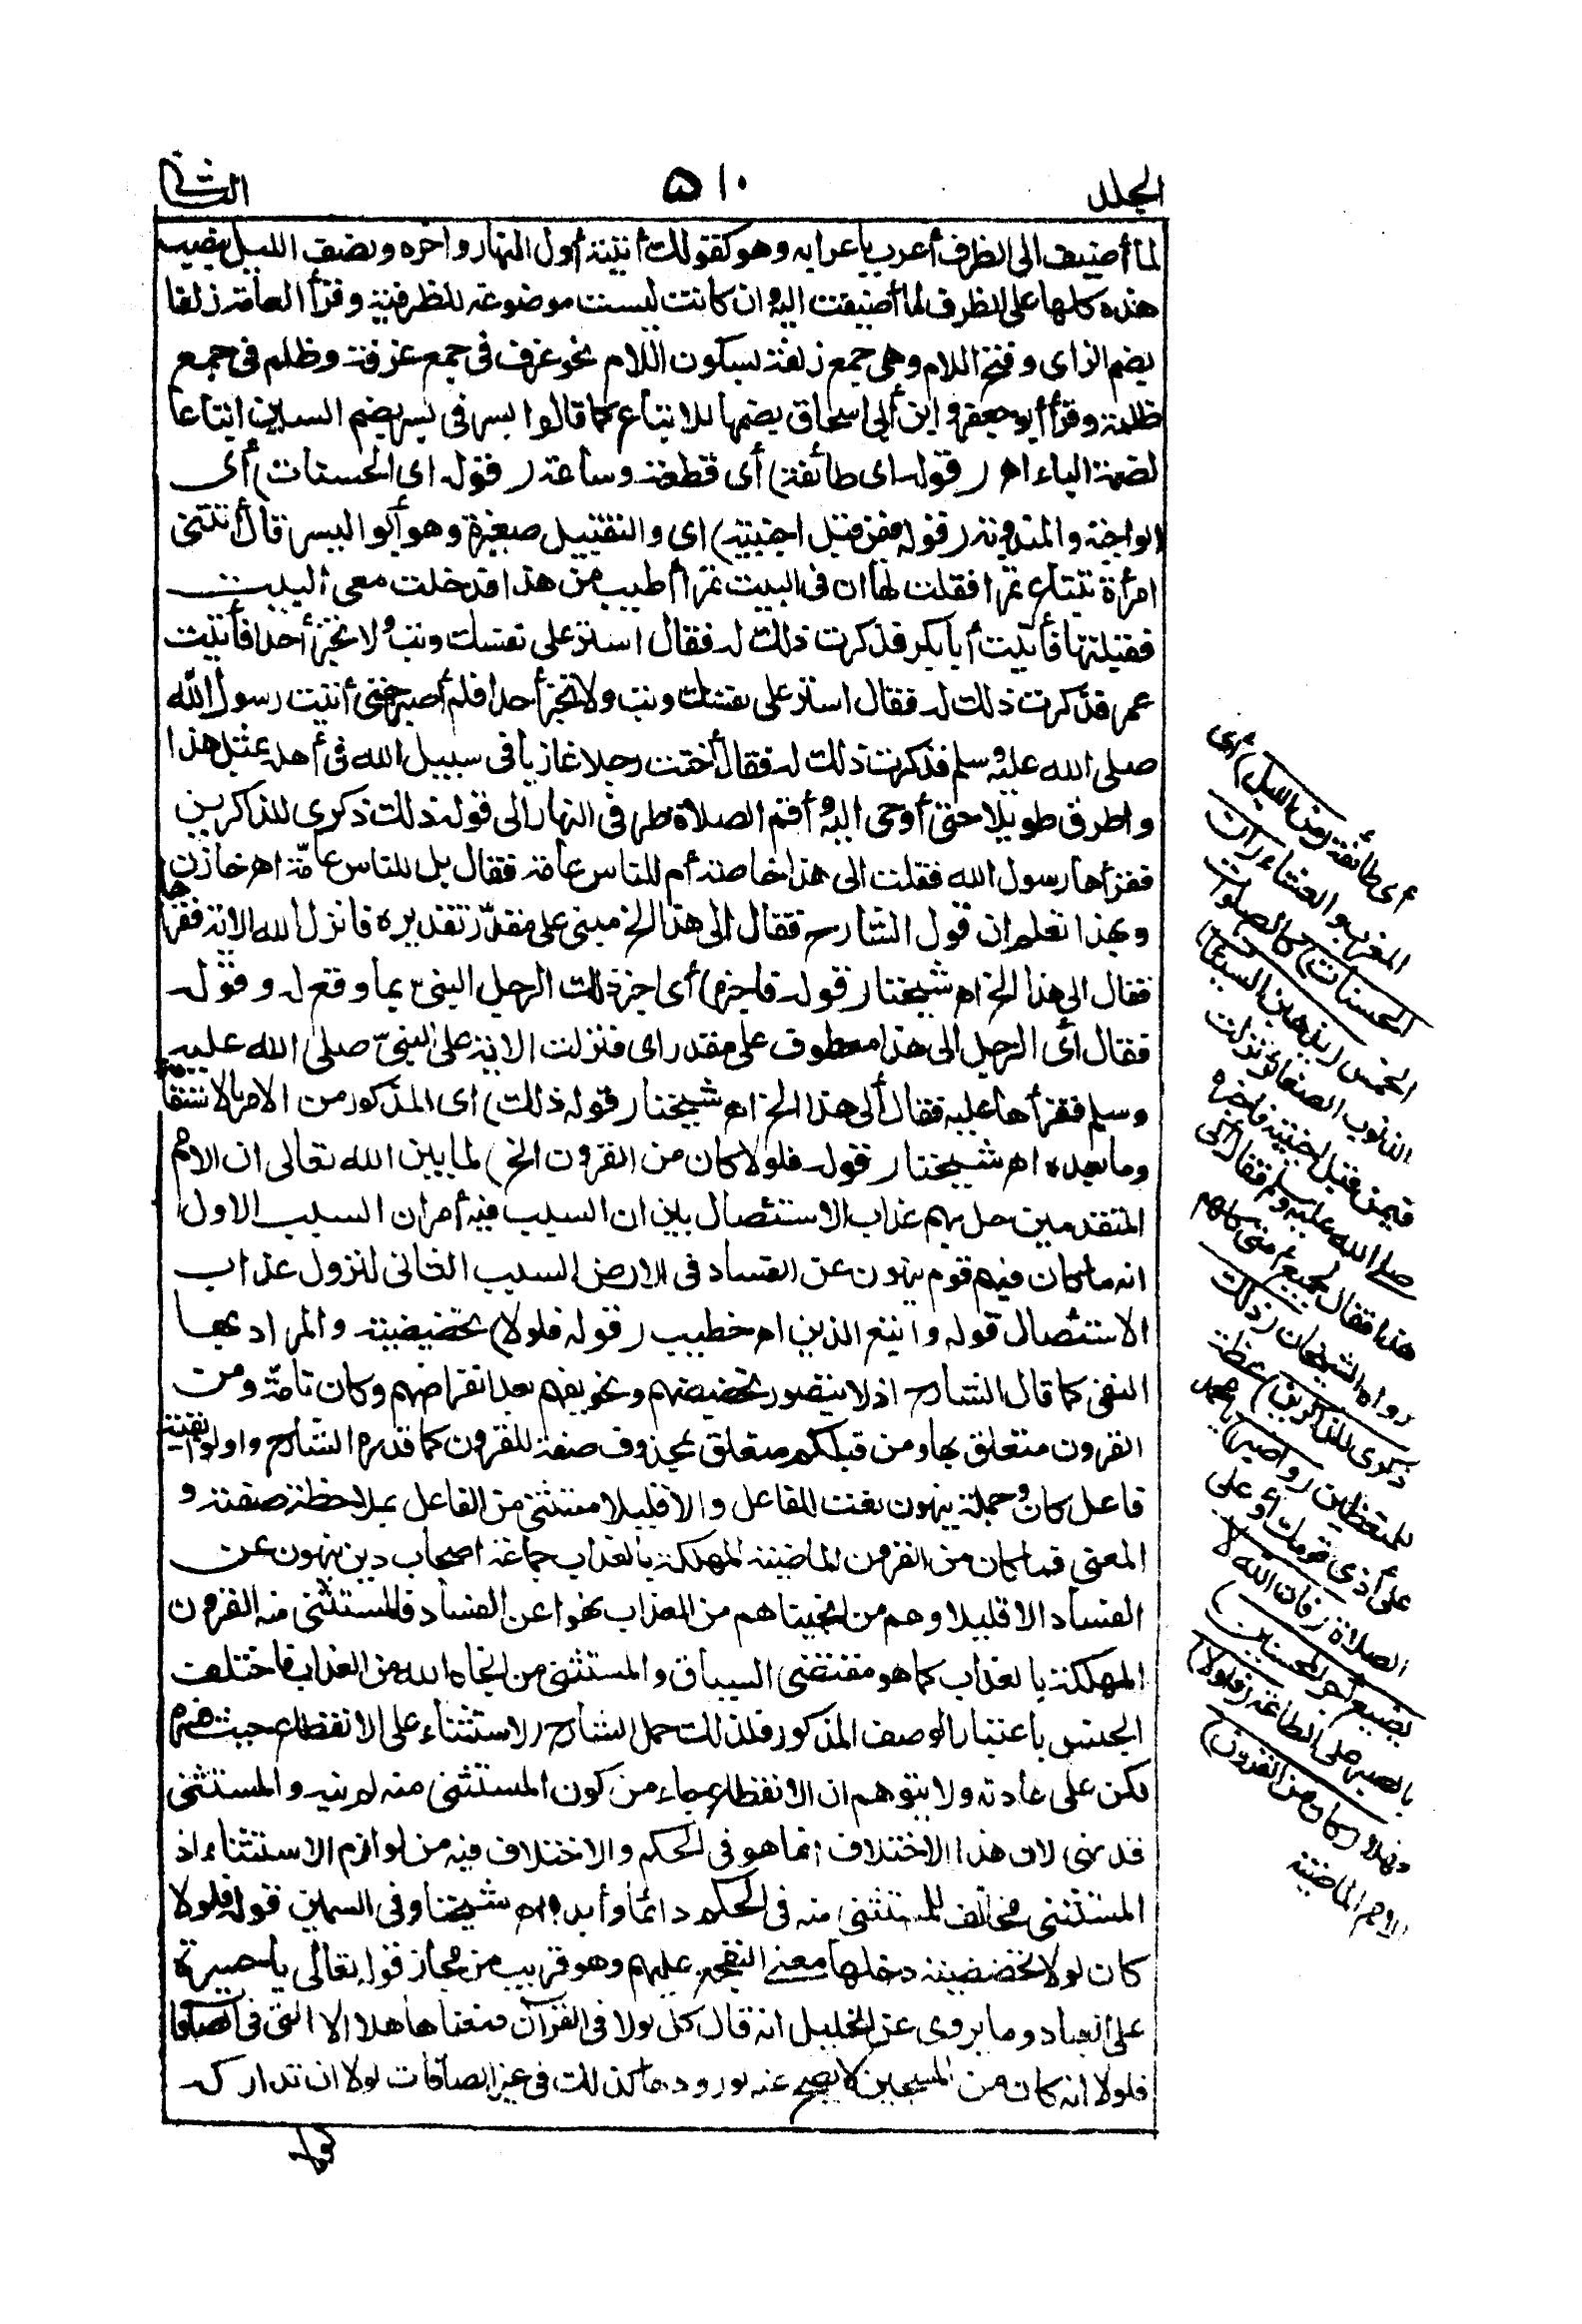 المجلد
٥١٠
الثاني
لما أضيف الى الظرف أعرب باعرابه وهو كقولك أتيته أول النهار وآخره ونصف الليل بنصب
هذه كلها على الظرف لما أضيفت اليه وان كانت ليست موضوعة للظرفية وقرأ العامة زلفا
بضم الزاى وفتح اللام وهى جمع زلفة بسكون اللام نحو غرف فى جمع غرفة وظلم فى جمع
ظلمة وقرأ أبو جعفر وابن أبى اسحاق بضمها للاتباع كما قالوا يسر فى يسر بضم السين اتباعا
لضمة الياء اهـ (قوله اى طائفة) أى قطعة وساعة (قوله اى الحسنات) أى
الواجبة والمندوبة (قوله فيمن قبل اجنبية) اى والتقبيل صغيرة وهو أبو اليسر قال أتتنى
امرأة تبتاع تمرا فقلت لها ان فى البيت تمرا أطيب من هذا فدخلت معى البيت
فقبلتها فأتيت أبا بكر فذكرت ذلك له فقال استر على نفسك وتب ولا تخبر أحدا فأتيت
عمر فذكرت ذلك له فقال استر على نفسك وتب ولا تخبر أحدا فلم أصبر حتى أتيت رسول الله
صلى الله عليه وسلم فذكرت ذلك له فقال أخنت رجلا غازيا فى سبيل الله فى أهله بمثل هذا
واطرق طويلا حتى أوحى اليه أقم الصلاة طرفى النهار الى قوله ذلك ذكرى للذاكرين
فقرأها رسول الله فقلت الى هذا خاصة أم للناس عامة فقال بل للناس عامّة اهـ خازن
وبهذا تعلم ان قول الشارح فقال الى هذا الخ مبنى على مقدّر تقديره فانزل الله الاية فقرأها
فقال الى هذا الخ اهـ شيخنا (قوله فاخبره) أى اخبر ذلك الرجل النبىّ بما وقع له وقوله
فقال أى الرجل الى هذا معطوف على مقدر اى فنزلت الاية على النبىّ صلى الله عليه
وسلم فقرأها عليه فقال ألى هذا الخ اهـ شيخنا (قوله ذلك) اى المذكور من الامر بالاستقامة
وما بعده اهـ شيخنا (قوله فلولا كان من القرون الخ) لما بين الله تعالى ان الامم
المتقدمين حل بهم عذاب الاستئصال بين ان السبب فيه أمران السبب الاول
انه ما كان فيهم قوم ينهون عن الفساد فى الارض السبب الثانى لنزول عذاب
الاستئصال قوله واتبع الذين اهـ خطيب (قوله فلولا) تحضيضية والمراد بها
النفى كما قال الشارح اذ لا يتصور تحضيضهم وتخويفهم بعد انقراضهم وكان تامّة ومن
القرون متعلق بها ومن قبلكم متعلق بمحذوف صفة للقرون كما قدره الشارح واولو ابقية
فاعل كان وجملة ينهون نعت للفاعل والا قليلا مستثنى من الفاعل بملاحظة صفته و
المعنى فما كان من القرون الماضية المهلكة بالعذاب جماعة اصحاب دين ينهون عن
الفساد الا قليلا وهم من انجيناهم من العذاب نهوا عن الفساد فالمستثنى منه القرون
المهلكة بالعذاب كما هو مقتضى السياق والمستثنى من انجاه الله من العذاب فاختلف
الجنس باعتبار الوصف المذكور فلذلك حمل الشارح الاستثناء على الانقطاع حيث فسره
بلكن على عادته ولا يتوهم ان الانقطاع جاء من كون المستثنى منه لم ينه والمستثنى
قد نهى لان هذا الاختلاف انما هو فى الحكم والاختلاف فيه من لوازم الاستثناء اذ
المستثنى مخالف للمستثنى منه فى الحكم دائما وأبدا اهـ شيخنا وفى السمين قوله فلولا
كان لولا تحضيضية دخلها معنى التفجع عليهم وهو قريب من مجاز قوله تعالى يا حسرة
على العباد وما يروى عن الخليل انه قال كل لولا فى القرآن فمعناها هلا الا التى فى الصافات
فلولا انه كان من المسبحين لا يصح عنه لورودها كذلك فى غير الصافات لولا ان تداركه
قوله
أى طائفة (من الليل) أى
المغرب والعشاء (ان
الحسنات) كالصلوات
الخمس (يذهبن السيئات)
الذنوب الصغائر نزلت
فيمن قبل اجنبية فاخبره
صلى الله عليه وسلم فقال ألى
هذا فقال لجميع أمتى كلهم
رواه الشيخان (ذلك
ذكرى للذاكرين) عظة
للمتعظين (واصبر) يا محمد
على أذى قومك أو على
الصلاة (فان الله لا
يضيع أجر المحسنين)
بالصبر على الطاعة (فلولا)
فهلا (كان من القرون)
الامم الماضية